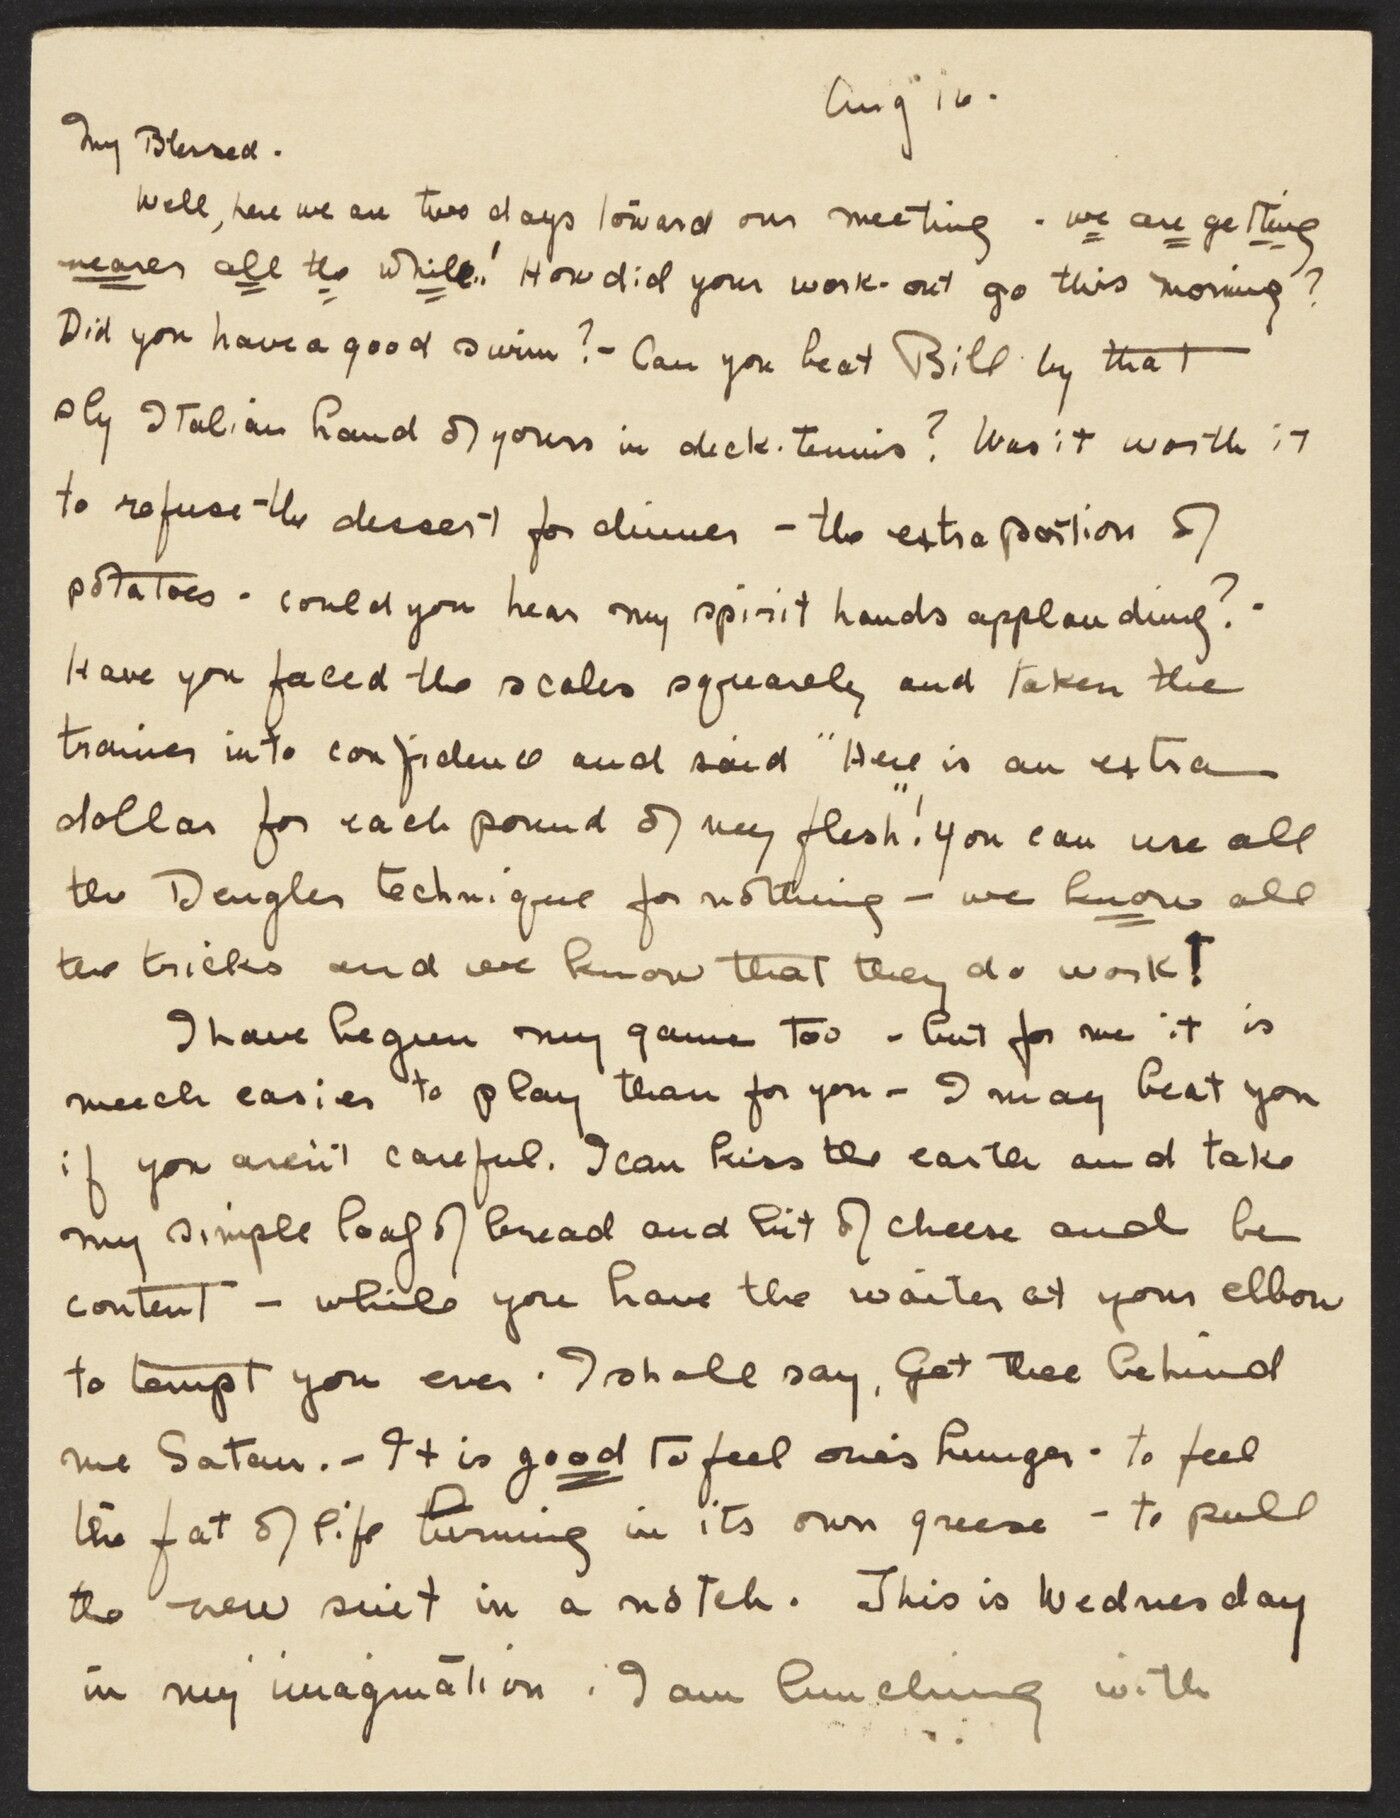 Aug 16.
My Blessed.
Well, here we are two days toward our meeting - we are getting
nearer all the while! How did your work-out go this morning?
Did you have a good swim? - Can you beat Bill by that
sly Italian hand of yours in deck-tennis? Was it worth it
to refuse the dessert for dinner - the extra portion of
potatoes - could you hear my spirit hands applauding? -
Have you faced the scales squarely and taken the
trainer into confidence and said "Here is an extra
dollar for each pound of my flesh"! You can use all
the Dengler technique for nothing - we know all
the tricks and we know that they do work!
I have begun my game too - but for me it is
much easier to play than for you - I may beat you
if you aren't careful. I can kiss the earth and take
my simple loaf of bread and bit of cheese and be
content - while you have the waiter at your elbow
to tempt you ever. I shall say, Get thee behind
me Satan. - It is good to feel one's hunger - to feel
the fat of life turning in its own grease - to pull
the new suit in a notch. This is Wednesday
in my imagination. I am lunching with